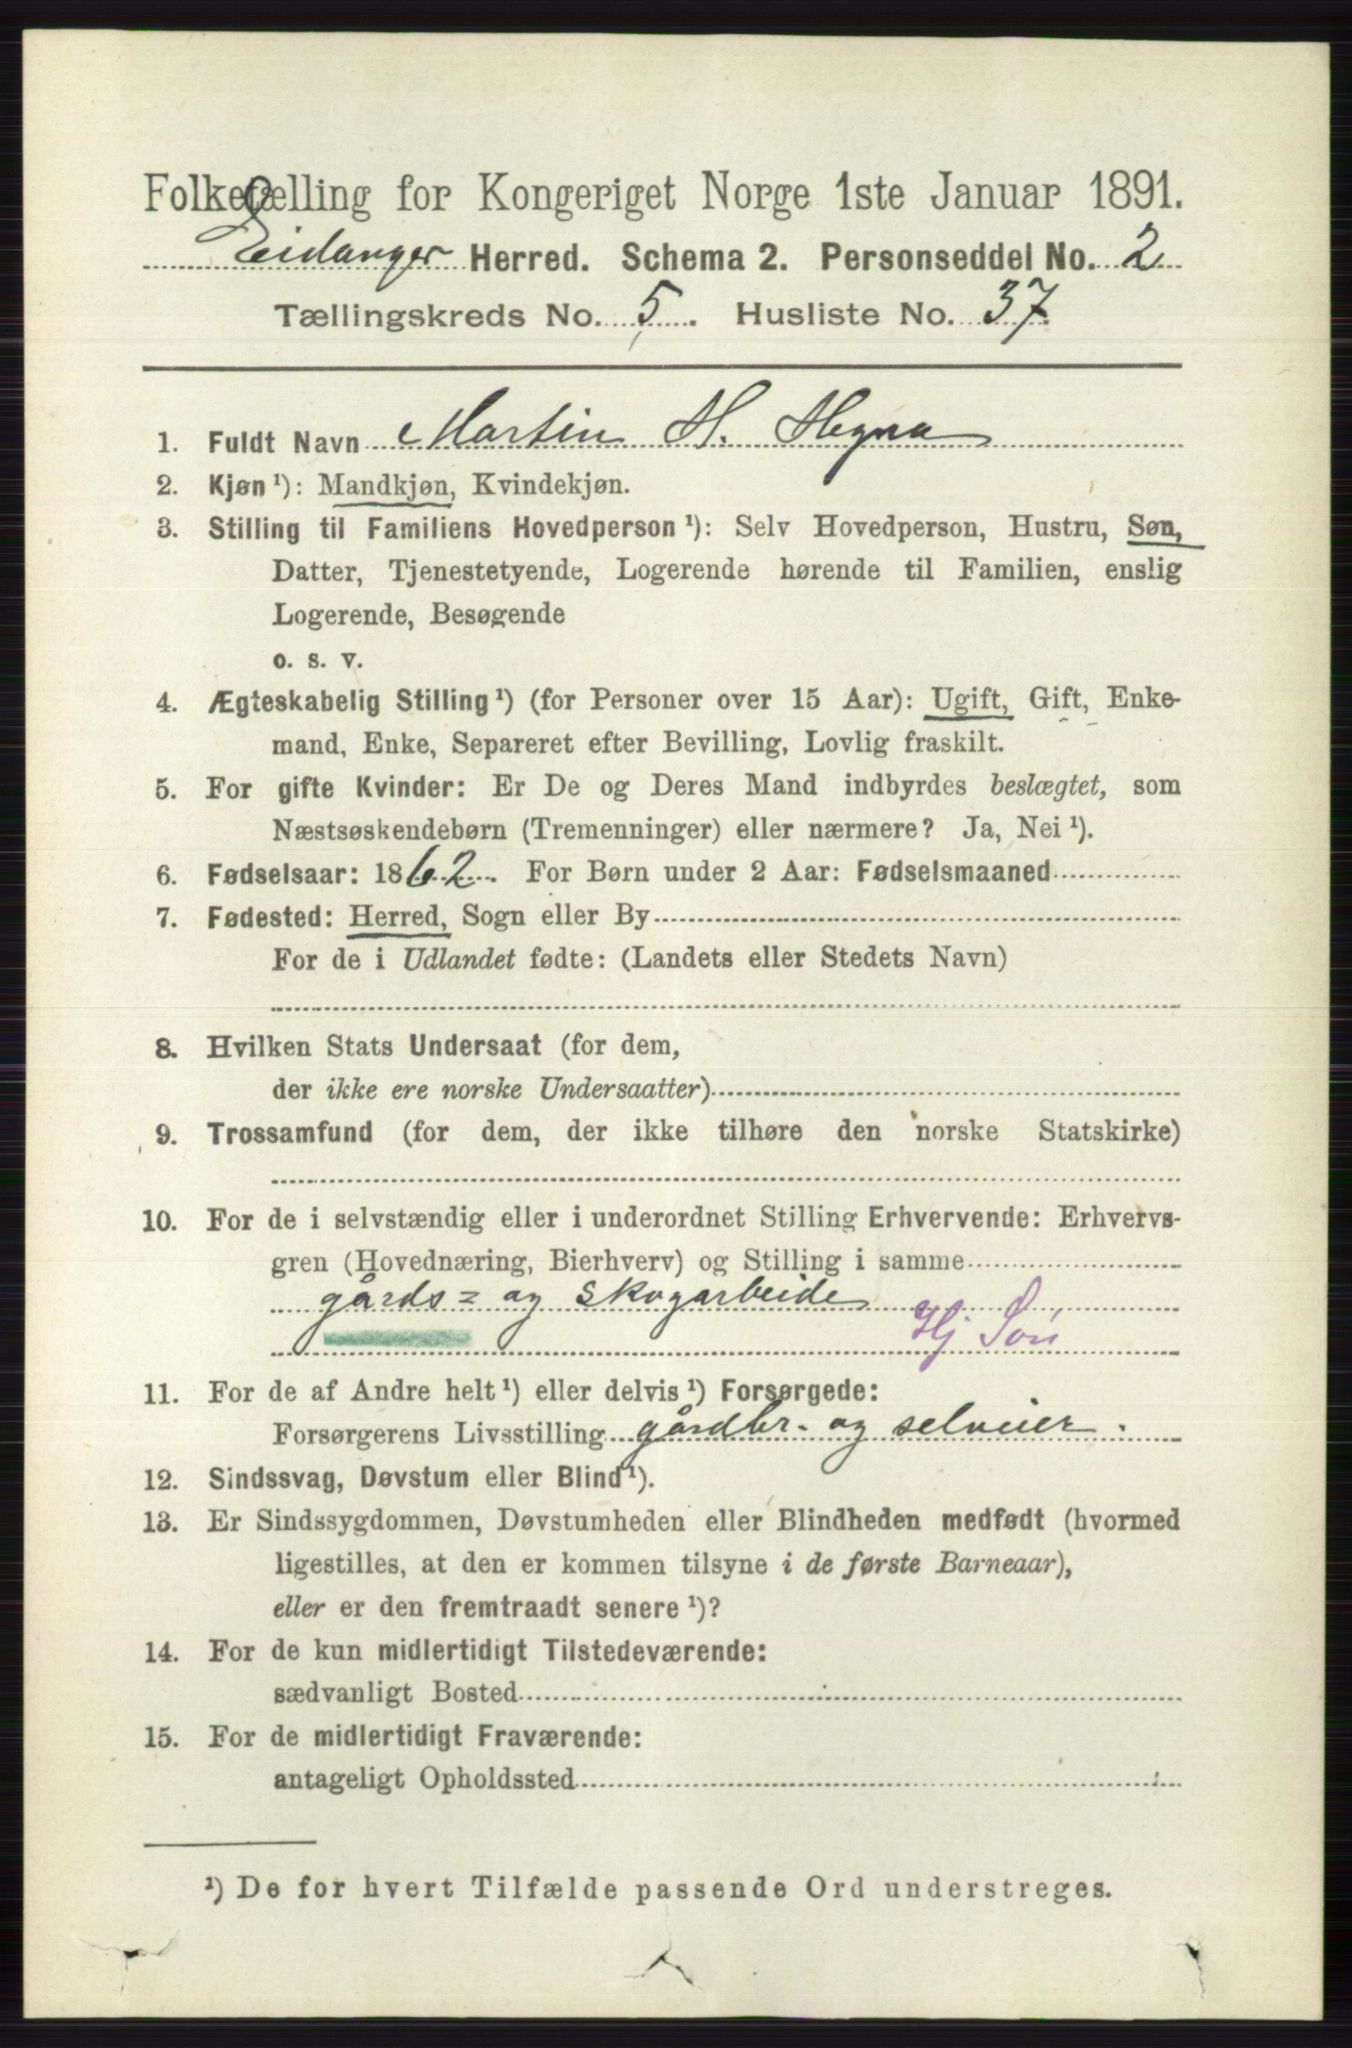 Folketælling for Kongeriget Norge 1ste Januar 1891.
Eidanger Herred. Schema 2. Personseddel No. 2
Tællingskreds No. 5. Husliste No. 37.
1. Fuldt Navn Martin H. Hegna
2. Kjøn ¹): Mandkjøn, Kvindekjøn.
3. Stilling til Familiens Hovedperson ¹): Selv Hovedperson, Hustru, Søn,
Datter, Tjenestetyende, Logerende hørende til Familien, enslig
Logerende, Besøgende
o. s. v.
4. Ægteskabelig Stilling ¹) (for Personer over 15 Aar): Ugift, Gift, Enke-
mand, Enke, Separeret efter Bevilling, Lovlig fraskilt.
5. For gifte Kvinder: Er De og Deres Mand indbyrdes beslægtet, som
Næstsøskendebørn (Tremenninger) eller nærmere? Ja, Nei ¹).
6. Fødselsaar: 1862. For Børn under 2 Aar: Fødselsmaaned
7. Fødested: Herred, Sogn eller By
For de i Udlandet fødte: (Landets eller Stedets Navn)
8. Hvilken Stats Undersaat (for dem,
der ikke ere norske Undersaatter)
9. Trossamfund (for dem, der ikke tilhøre den norske Statskirke)
10. For de i selvstændig eller i underordnet Stilling Erhvervende: Erhvervs-
gren (Hovednæring, Bierhverv) og Stilling i samme
gårds= og skogarbeide
Hj Søn
11. For de af Andre helt ¹) eller delvis ¹) Forsørgede:
Forsørgerens Livsstilling gårdbr. og selveier.
12. Sindssvag, Døvstum eller Blind ¹).
13. Er Sindssygdommen, Døvstumheden eller Blindheden medfødt (hvormed
ligestilles, at den er kommen tilsyne i de første Barneaar),
eller er den fremtraadt senere ¹)?
14. For de kun midlertidigt Tilstedeværende:
sædvanligt Bosted
15. For de midlertidigt Fraværende:
antageligt Opholdssted
¹) De for hvert Tilfælde passende Ord understreges.